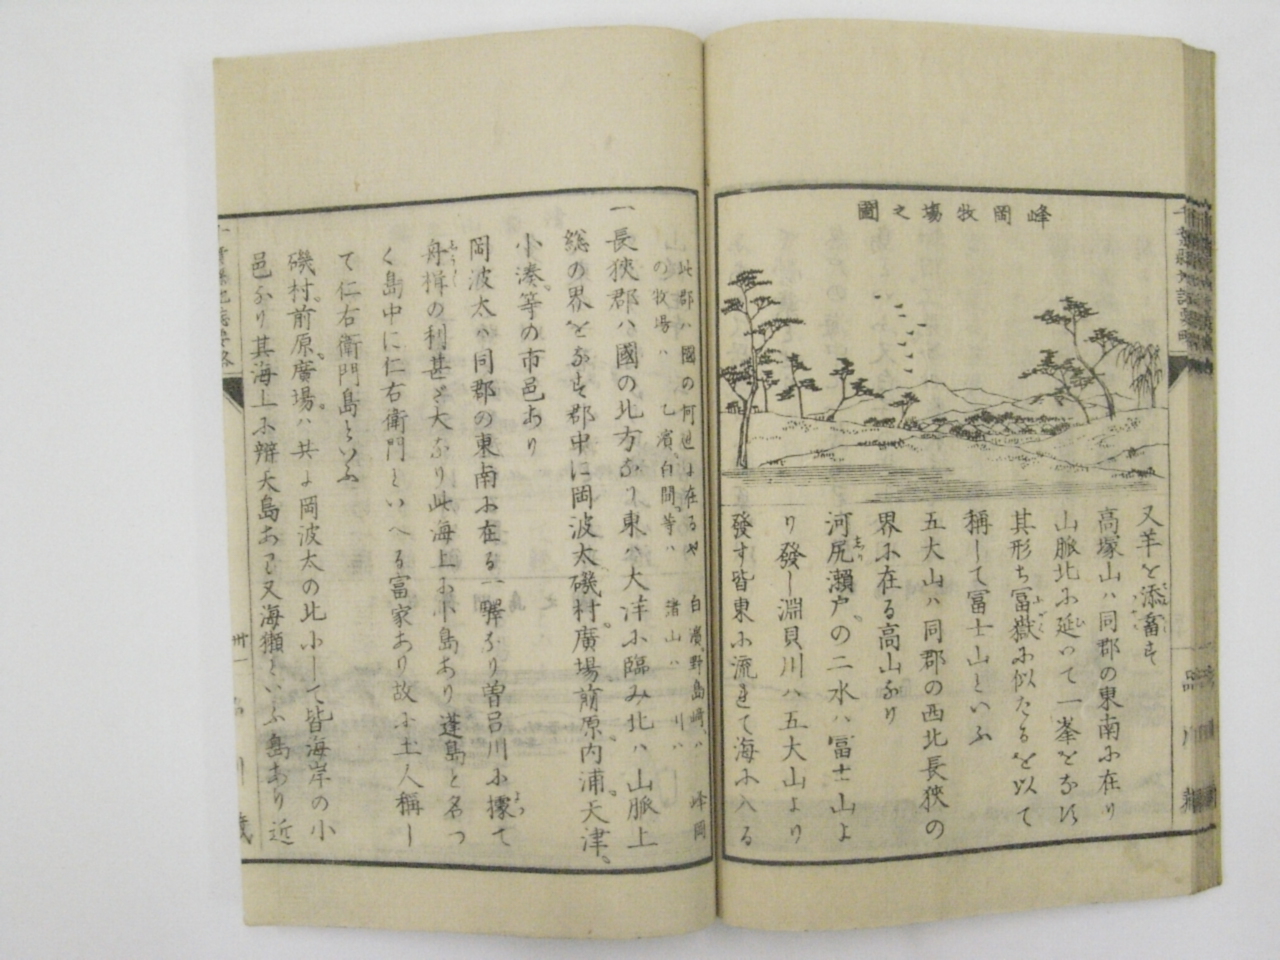 峰岡牧場之圖
又羊を添畜す
高塚山ハ同郡の東南に在り
山脈北に延いて一峯をなす
其形ち富嶽に似たるを以て
稱して富士山といふ
五大山ハ同郡の西北長狹の
界に在る高山なり
河尻瀬戸の二水ハ富士山よ
り發し淵貝川ハ五大山より
發す皆東に流れて海に入る
此郡ハ國の何她に在るや 白濱、野島崎、ハ
の牧場ハ 乙濱、白間、等ハ 渚山ハ 川ハ 峰岡
一長狹郡ハ國の北方なり東ハ大洋に臨み北ハ山脈上
總の界をなす郡中に岡波太磯村廣場前原内浦天津
小湊等の市邑あり
岡波太ハ同郡の東南に在る一驛なり曽呂川に據て
舟楫の利甚だ大なり此海上に小島あり蓬島と名つ
く島中に仁右衛門といへる富家あり故に土人稱し
て仁右衛門島といふ
磯村前原廣場ハ共に岡波太の北にして皆海岸の小
邑なり其海上に辨天島あり又海獺といふ島あり近
卅一